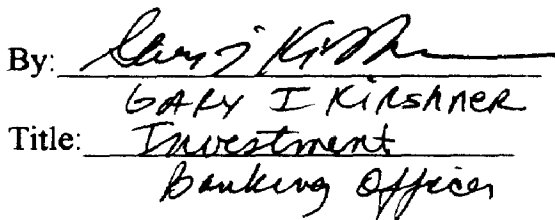 By: Gary I Kirshner
GARY I KIRSHNER
Title: Investment
Banking Officer